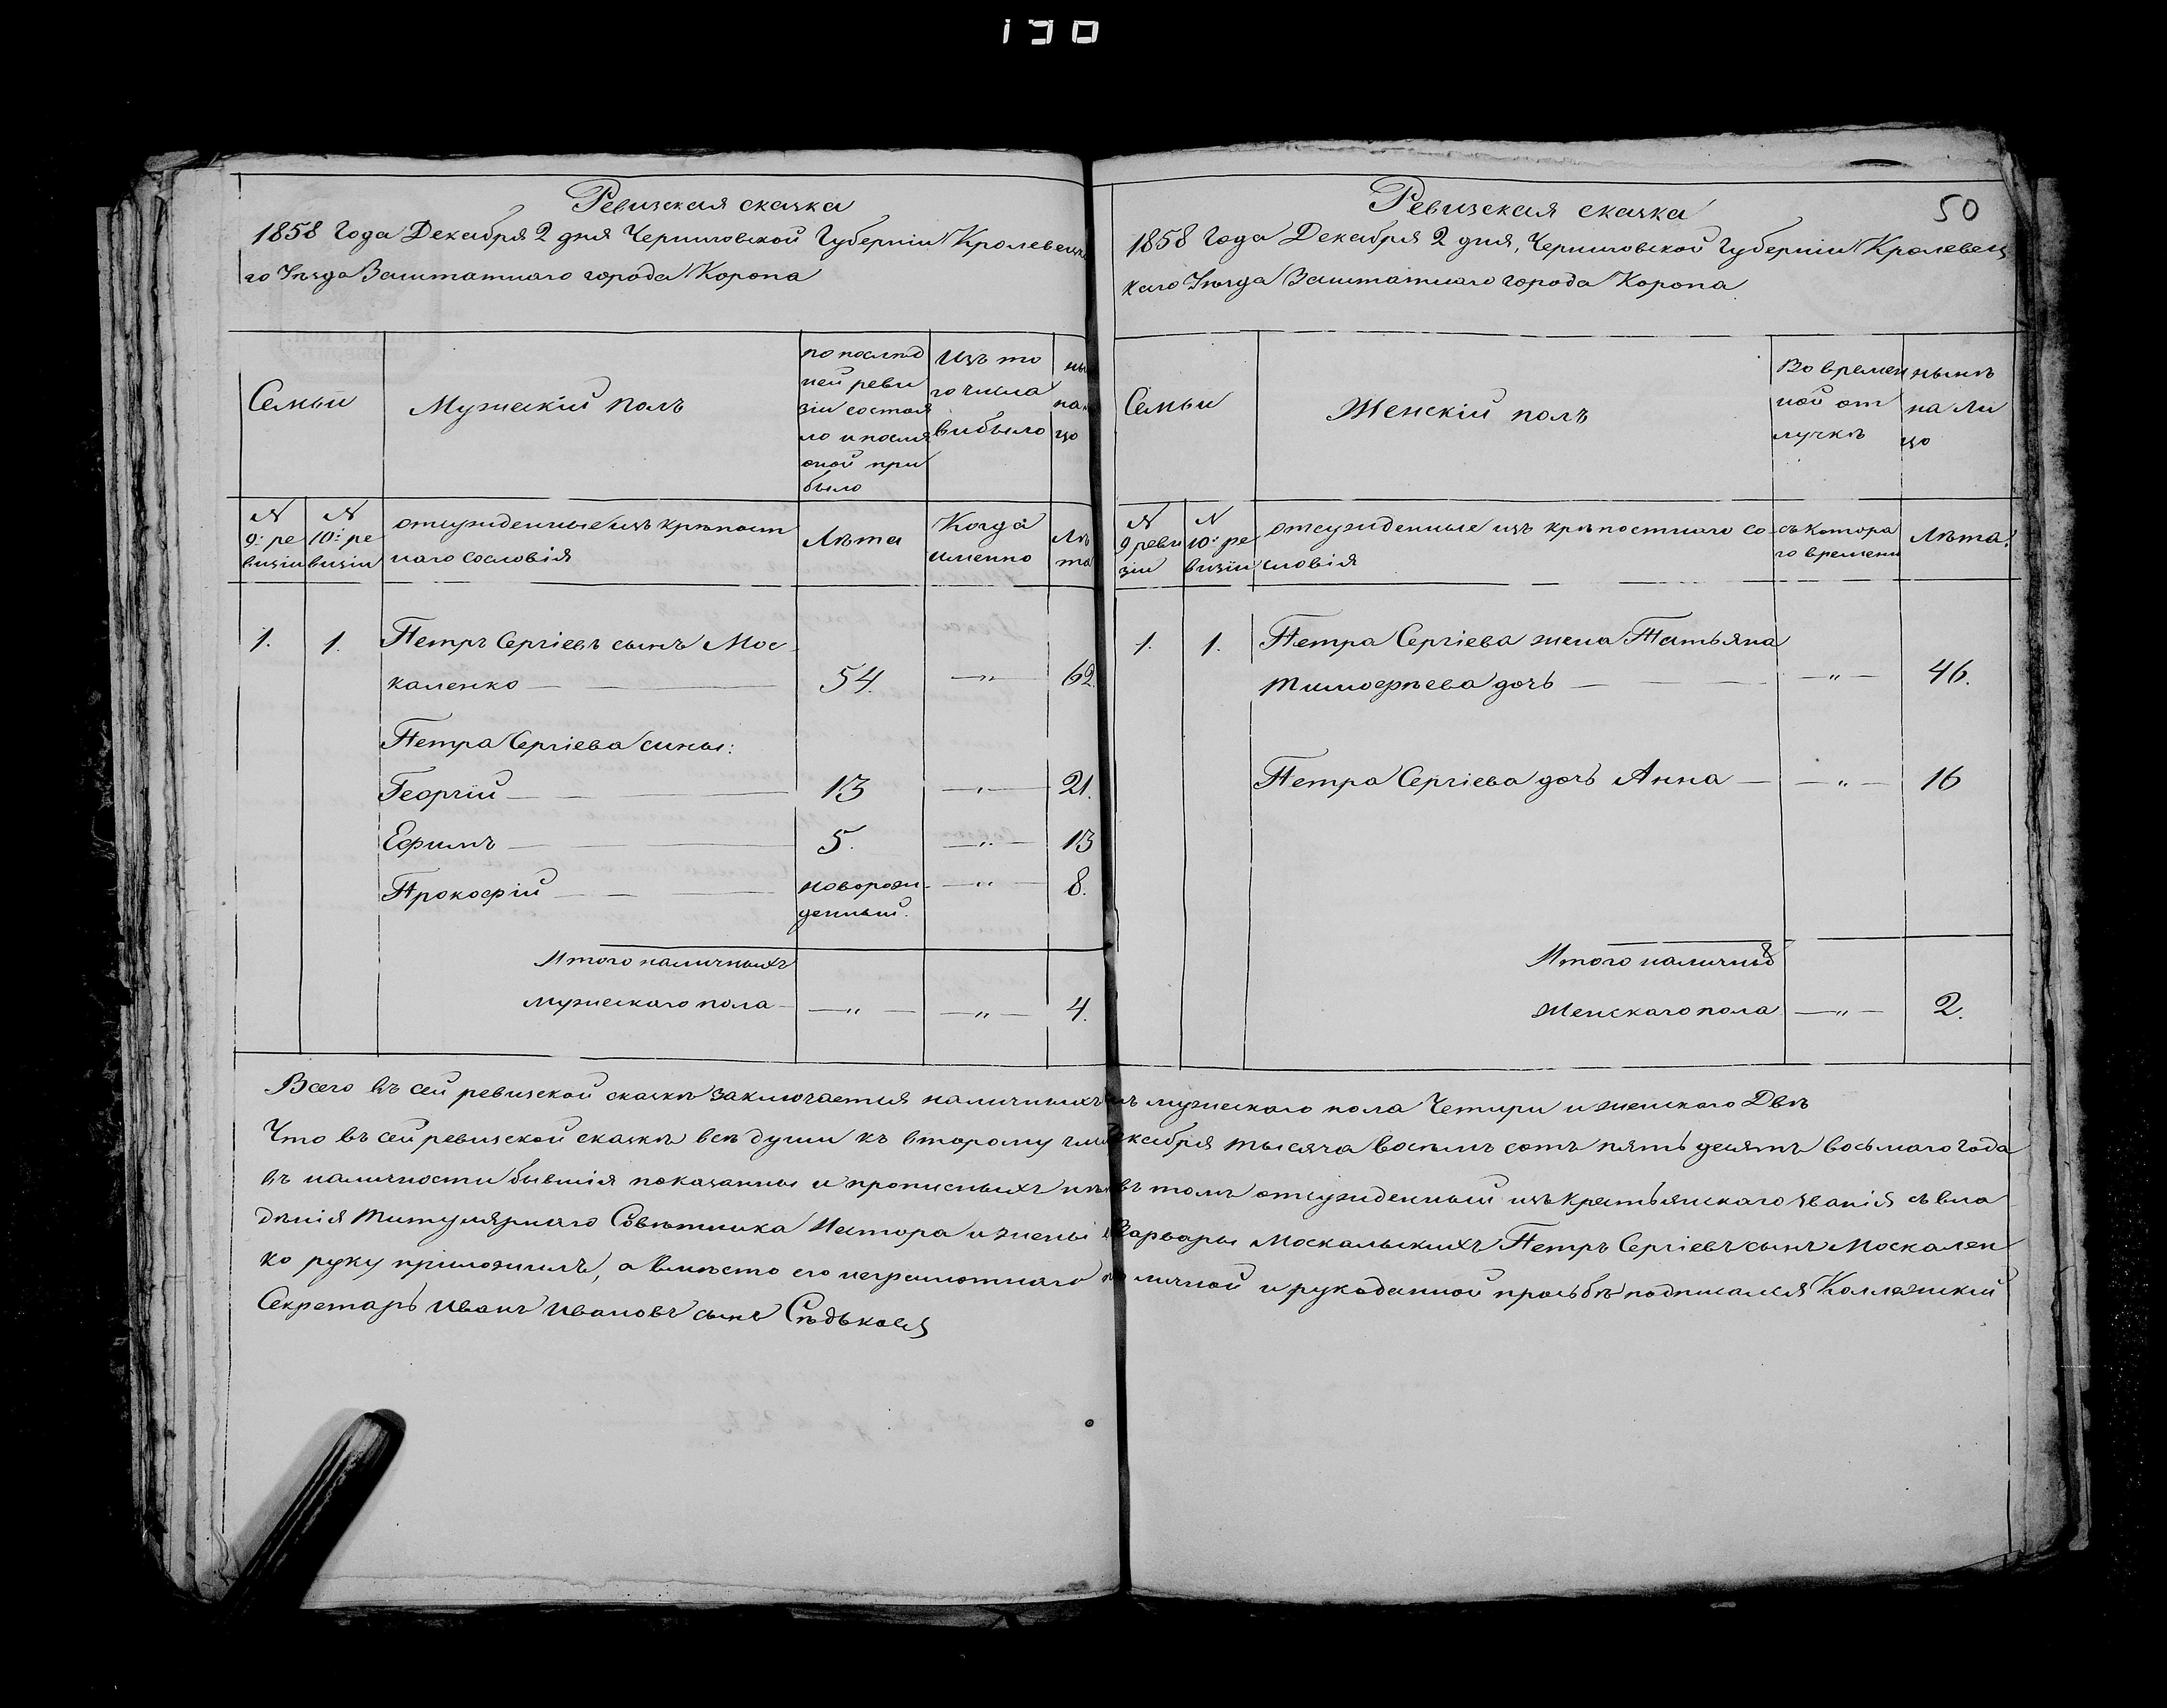 190
Ревизская сказка
1858 Года Декабря 2 дня Черниговской Губерніи Кролевецка
го Уѣзда Заштатнаго города Коропа
Семьи
Мужескій полъ
по послѣд
ней реви
зіи состоя
ло и послѣ
оной при
было
Изъ то
го числа
выбыло
ны
на
цо
N
9й ре
визіи
N
10й ре
визіи
отсужденные изъ крѣпост
наго сословія
Лѣта
Когда
именно
Лѣ
та
1.
1.
Петръ Сергіевъ сынъ Мос
каленко — 54. —"— 62.
Петра Сергіева сины:
Георгій — 13 —"— 21.
Ефимъ — 5. —"— 13
Прокофій — новорож —"— 8.
денный.
Итого наличныхъ
мужескаго пола — —"— —"— 4.
50
Ревизская сказка
1858 Года Декабря 2 дня, Черниговской Губерніи Кролевец
каго Уѣзда Заштатнаго города Коропа
Семьи
Женскій полъ
Во времен
ной от
лучкѣ
нынѣ
на ли
цо
N
9 реви
зіи
N
10й ре
визіи
отсужденные изъ крѣпостнаго со
словія
съ котора
го времени
Лѣта
1.
1.
Петра Сергіева жена Татьяна
Тимофѣева дочь — —"— 46.
Петра Сергіева дочь Анна — —"— 16
Итого налично
Женскаго пола —"— 2.
Всего въ сей ревизской сказкѣ заключается наличныхъ мужескаго пола Четыри и женского Двѣ
Что въ сей ревизской сказкѣ всѣ души къ второму Декабря тысяча восемь сотъ пять десятъ восьмаго года
въ наличности бывшія показанны и прописныхъ нѣтъ въ томъ отсужденный изъ крестьянскаго званія съ вла
дѣнія Титулярнаго Совѣтника Нестора и жены Варвары Москальскихъ Петръ Сергіевъ сынъ Москален
ко руку приложилъ, а вмѣсто его неграмотнаго по личной и рукоданной прозьбѣ подписался Коллежскій
Секретарь Иванъ Ивановъ сынъ